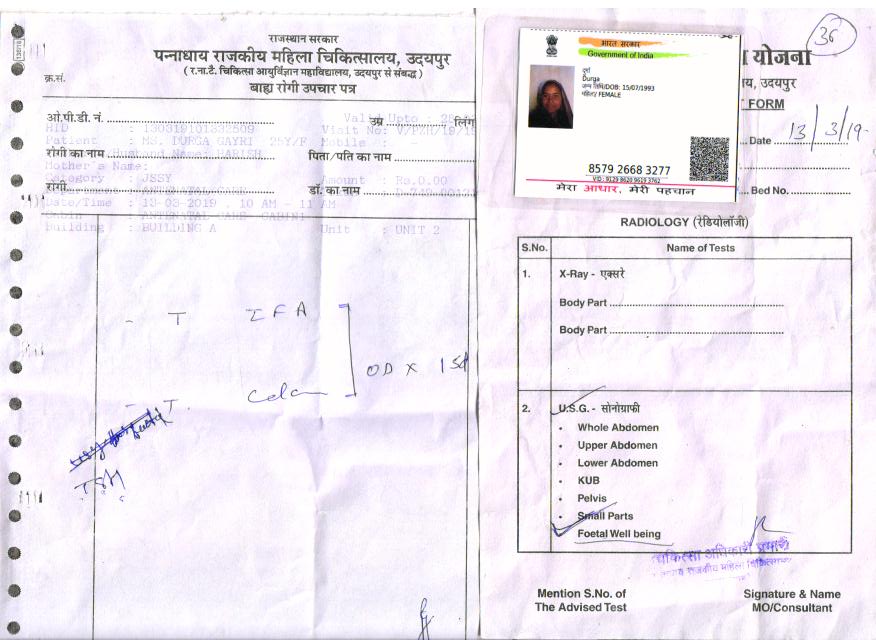 राजस्थान सरकार
पन्नाधाय राजकीय महिला चिकित्सालय, उदयपुर
( र.ना.टै. चिकित्सा आयुर्विज्ञान महाविद्यालय, उदयपुर से संबद्ध )
क्र.सं.
बाह्य रोगी उपचार पत्र
ओ.पी.डी. नं.
उम्र
लिंग
Valid Upto :
HID : 130319101332509
Visit No:
Patient : MS. DURGA GAYRI 25Y/F
Mobile :
रोगी का नाम
पिता/पति का नाम
Husband Name: HARISH
Mother's Name:
Category : JSSY
Amount : Rs.0.00
रोगी
डॉ. का नाम
Date/Time : 13-03-2019 , 10 AM - 11 AM
Cabin : ANTENATAL CARE CABIN1
Building : BUILDING A
Unit : UNIT 2
- T IFA
OD X 15d
- T.
TSH
भारत सरकार
Government of India
दुर्गा
Durga
जन्म तिथि/DOB: 15/07/1993
महिला/ FEMALE
8579 2668 3277
VID : 9129 8620 9619 3762
मेरा आधार, मेरी पहचान
36
योजना
य, उदयपुर
FORM
Date 13/3/19
Bed No.
RADIOLOGY (रेडियोलॉजी)
S.No. Name of Tests
1. X-Ray - एक्सरे
Body Part
Body Part
2. U.S.G. - सोनोग्राफी
• Whole Abdomen
• Upper Abdomen
• Lower Abdomen
• KUB
• Pelvis
• Small Parts
Foetal Well being
चिकित्सा अधिकारी प्रभारी
राजकीय महिला चिकित्सालय
Mention S.No. of
The Advised Test
Signature & Name
MO/Consultant